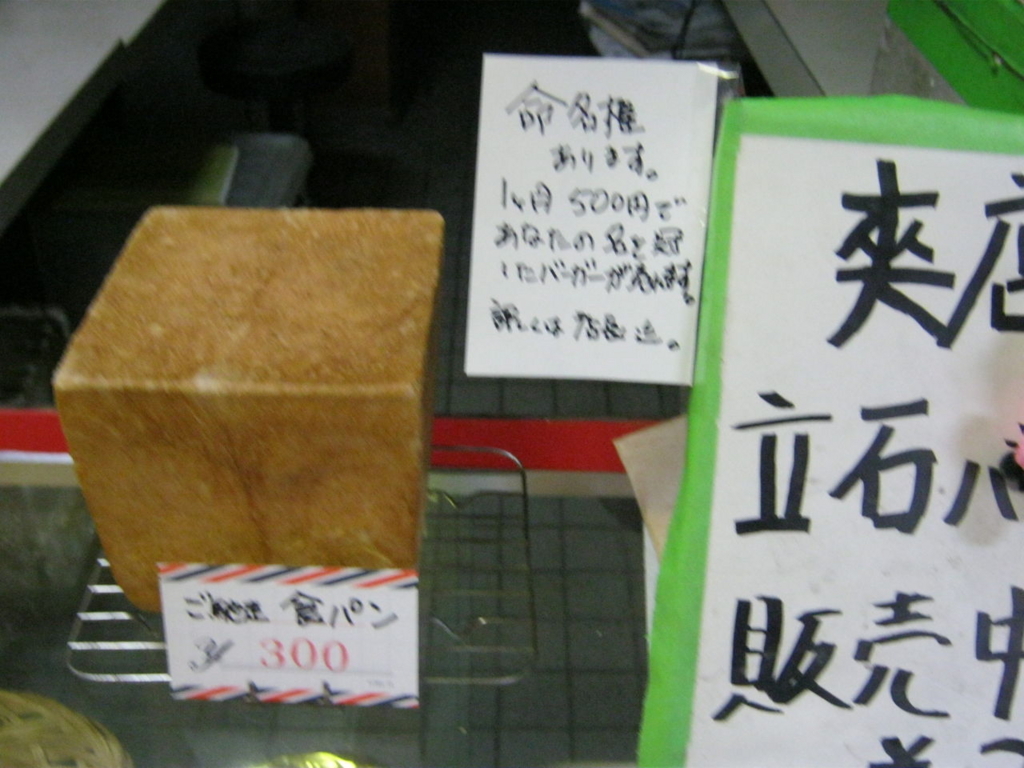 命名権
あります。
1ヶ月 500円で
あなたの名を冠
したバーガーが売れます。
詳しくは 店長迄。
ご馳走 食パン
300
夾店
立石バ
販売中